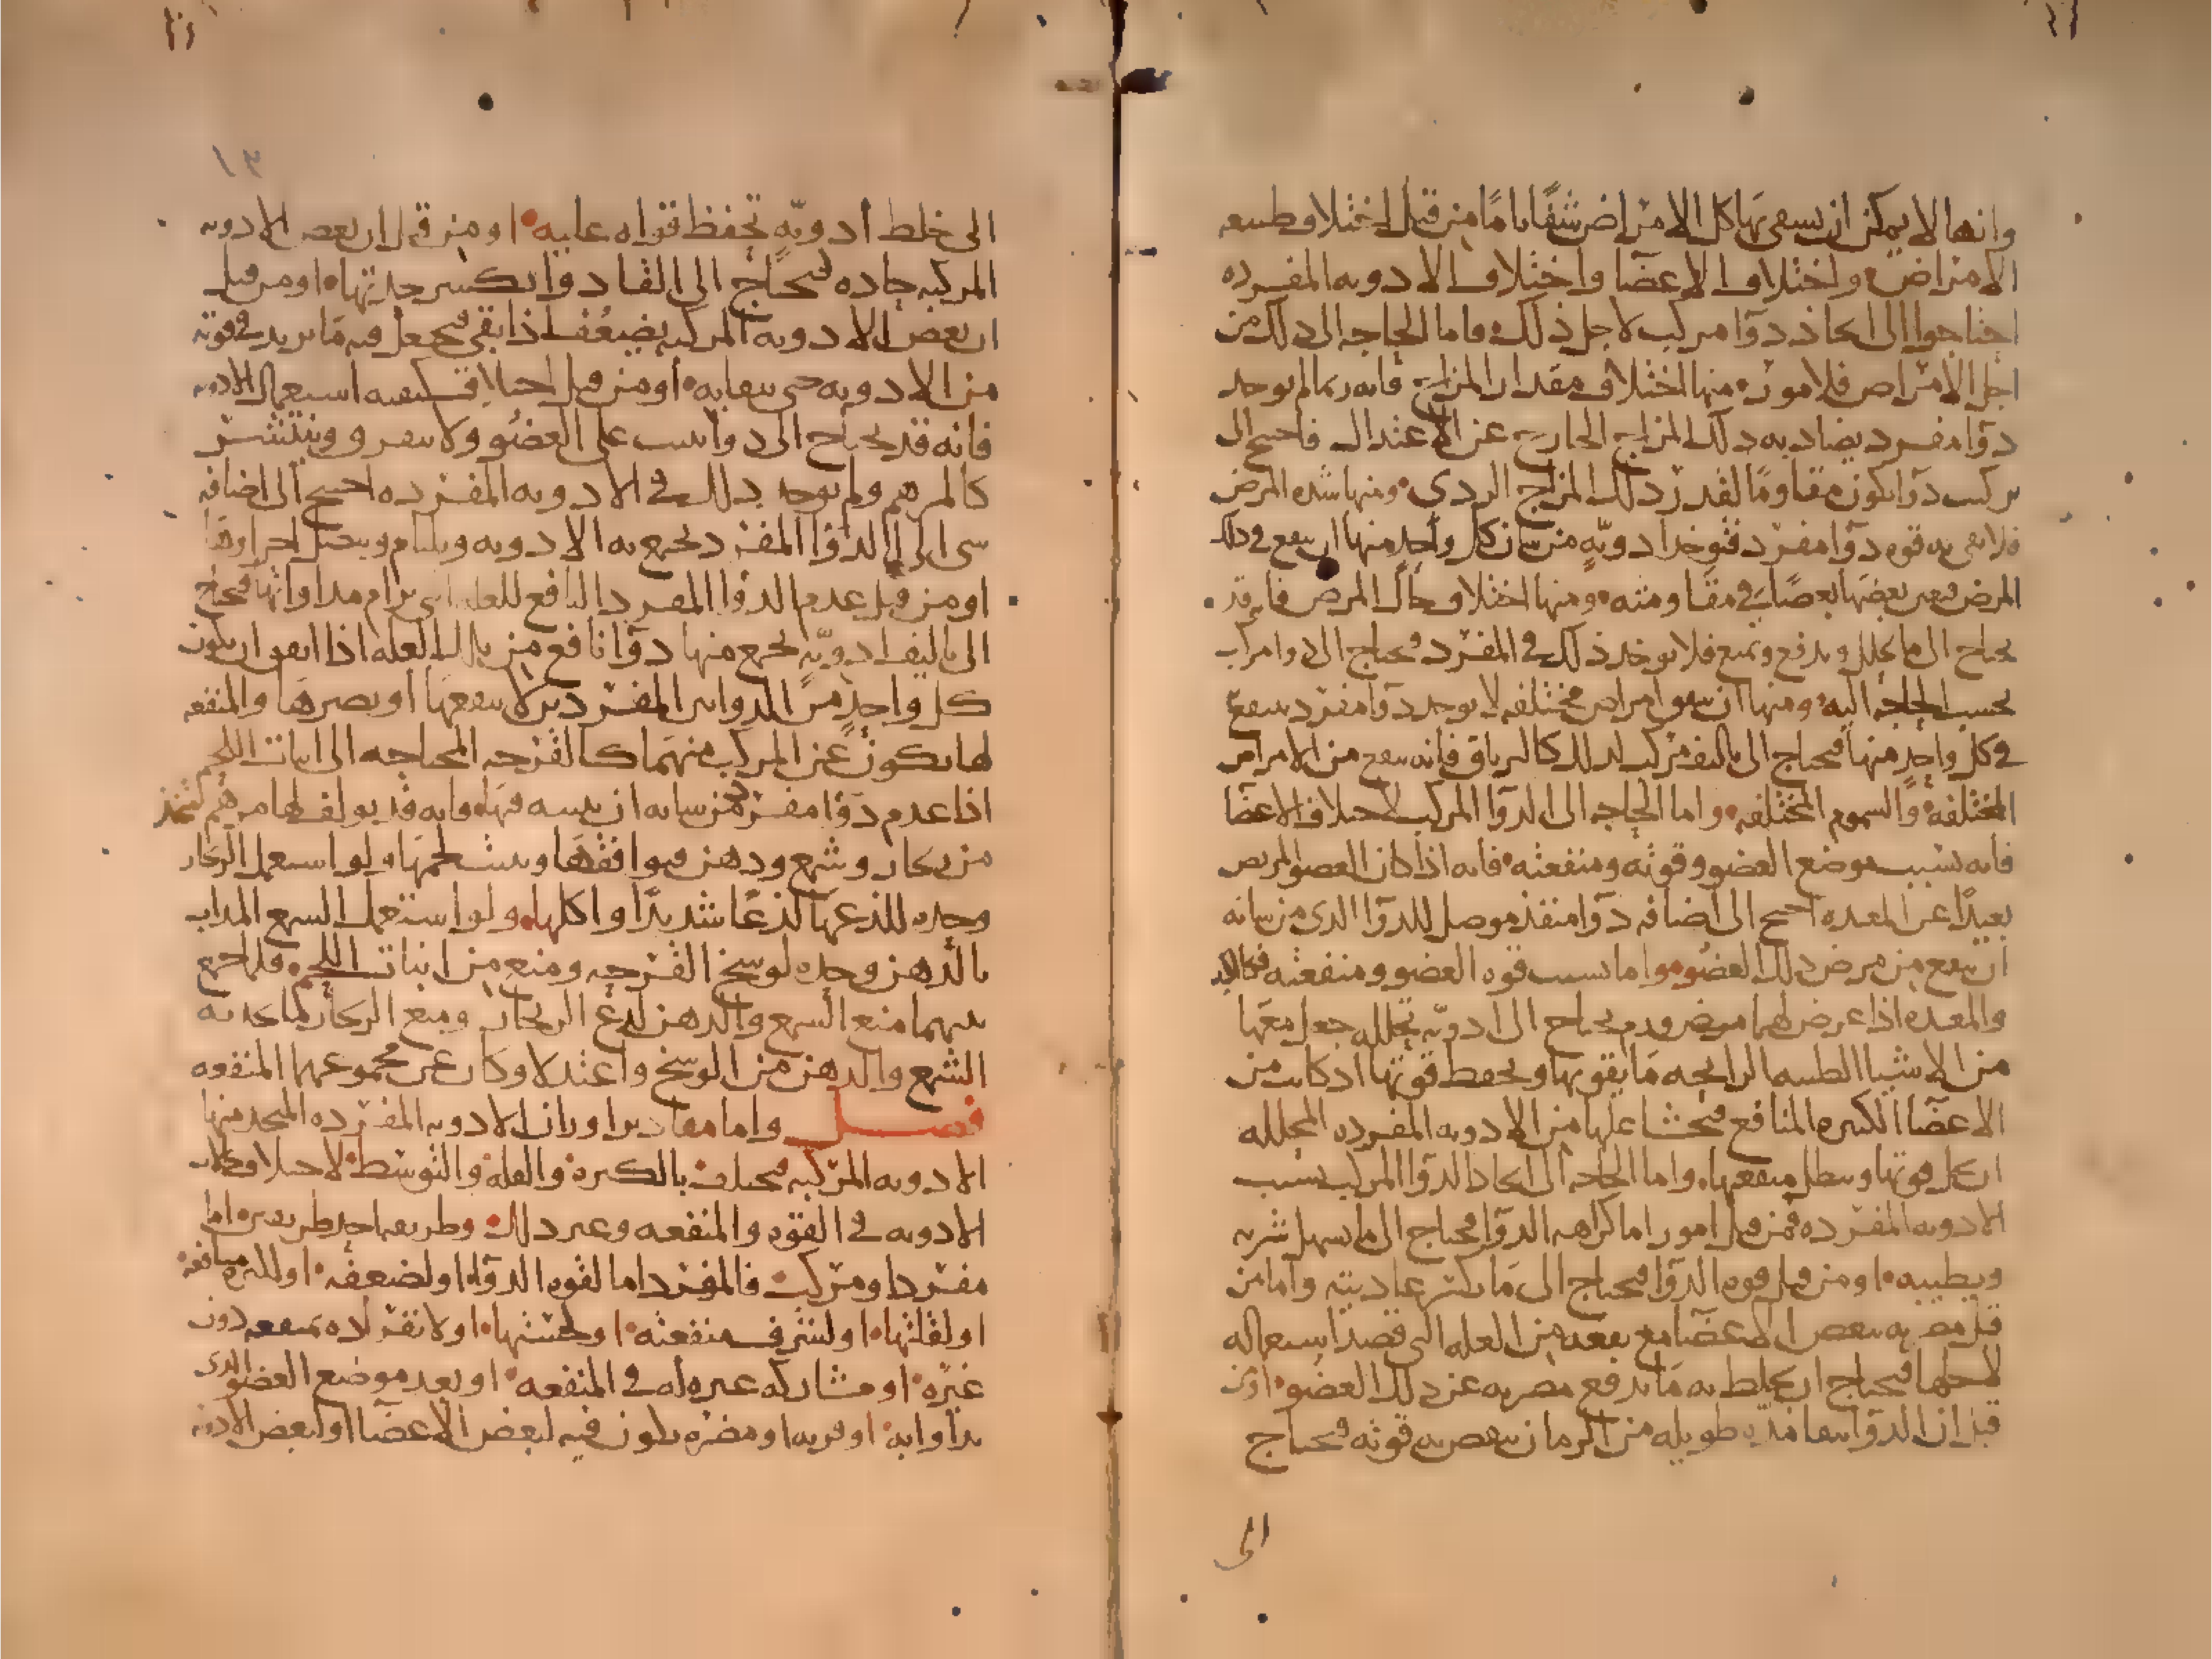 وانها لا يمكن ان يسفى بها كل الامراض شفاء تاما من قبل اختلاف طبيعه
الامراض واختلاف الاعضا واختلاف الادويه المفرده
احتاجوا الى اتخاذ دوآ مركب لاجل ذلك فاما الحاجه الى ذلك من
اجل الامراض فلامور منها اختلاف مقدار المزاج فانه ربما لم يوجد
دوآ مفرد يضاد به ذلك المزاج الخارج عن الاعتدال فاحتيج الى
تركيب دوآ يكون مقاوما لقدر ذلك المزاج الردى ومنها شده المرض
فلا تفى به قوه دوآ مفرد فتوخذ ادويه من شان كل واحد منها ان ينفع فى ذلك
المرض فيعين بعضها بعضا فى مقاومته ومنها اختلاف حال المرض فانه قد
يحتاج الى ما يحلل ويدفع ويمنع فلا يوجد ذلك فى المفرد فيحتاج الى دوا مركب
بحسب الحاجه اليه ومنها ان يتفق امراض مختلفه لا يوجد دوآ مفرد ينفع
فى كل واحد منها فيحتاج الى تاليف مركب لذلك كالترياق فانه ينفع من الامراض
المختلفه والسموم المختلفه واما الحاجه الى الدوآ المركب لاختلاف الاعضا
فانه بسبب موضع العضو وقوته ومنفعته فانه اذا كان العضو المريض
بعيدا عن المعده احتيج الى اضافه دوآ منفذ موصل للدوآ الذى من شانه
ان ينفع من مرض ذلك العضو واما بسبب قوه العضو ومنفعته فكالكبد
والمعده اذا عرض لهما مرض ورم يحتاج الى ادويه تحلله جعل معها
من الاشيا الطيبه الرايحه ما يقويها ويحفظ قوتها اذ كانت من
الاعضآ الكثيره المنافع فيخشا عليها من الادويه المفرده المحلله
ان يحل قوتها ويبطل منفعتها واما الحاجه الى اتخاذ الدوآ المركب بسبب
الادويه المفرده فمن قبل امور اما كراهه الدوآ فيحتاج الى ما يسهل شربه
ويطيبه او من قبل قوه الدوآ فيحتاج الى ما يكسر عاديته واما من
قبل مضرته ببعض الاعضآ مع نفعه من العله التى قصد استعماله
لاجلها فيحتاج ان يخلط به ما يدفع مضرته عن ذلك العضو او من
قبل ان الدوآ يبقا مده طويله من الزمان تنقص به قوته فيحتاج
الى
١٣
الى خلط ادويه تحفظ قواه عليه او من قبل ان بعض الادويه
المركبه حاده فيحتاج الى القا دوا يكسر حدتها او من قبل
ان بعض الادويه المركبه يضعف اذا بقى فيجعل فيه ما يزيد فى قوته
من الادويه حتى يبقا به او من قبل اختلاف كيفيه استعمال الادويه
فانه قد يحتاج الى دوآ يثبت على العضو ولا يتفرق وينتشر
كالمرهم ولم يوجد ذلك فى الادويه المفرده احتيج الى اضافه
شى اخر الى الدوا المفرد تجمع به الادويه ويلتام ويتصل اجزاوها
او من قبل عدم الدوا المفرد النافع للعله التى يرام مداواتها فيحتاج
الى تاليف ادويه يجمع منها دوآ نافع من تلك العله اذا اتفق ان يكون
كل واحد من الدواين المفردين لا ينفعها او يضرها والمنفعه
لها تكون عن المركب منهما كالقرحه المحتاجه الى انبات اللحم
اذا عدم دوآ مفرد من شانه ان ينبته فيها فانه قد يولف لها مرهم يتخذ
من زنجار وشمع ودهن فيوافقها وينبت لحمها ولو استعمل الزنجار
وحده للذعها لذعا شديدا واكلها ولو استعمل الشمع المذاب
بالدهن وحده لوسخ القرحه ومنع من انبات اللحم فلما جمع
بينهما منع الشمع والدهن لذع الزنجار ومنع الزنجار ما يحدثه
الشمع والدهن من الوسخ واعتدلا وكان عن مجموعهما المنفعه
فصل واما مقادير اوزان الادويه المفرده المتخذ منها
الادويه المركبه فمختلف بالكثره والقله والتوسط لاختلاف حالات
الادويه فى القوه والمنفعه وغير ذلك
مفرد او مركب فالمفرد اما لقوه الدوآ او لضعفه او لكثره منافعه
او لقلتها او لشرف منفعته او لخستها او لانفراده بمنفعه دون
غيره او مشاركه غيره له فى المنفعه او بعد موضع العضو الذى
يداوا به او قربه او مضره تكون فيه لبعض الاعضآ او لبعض الادويه